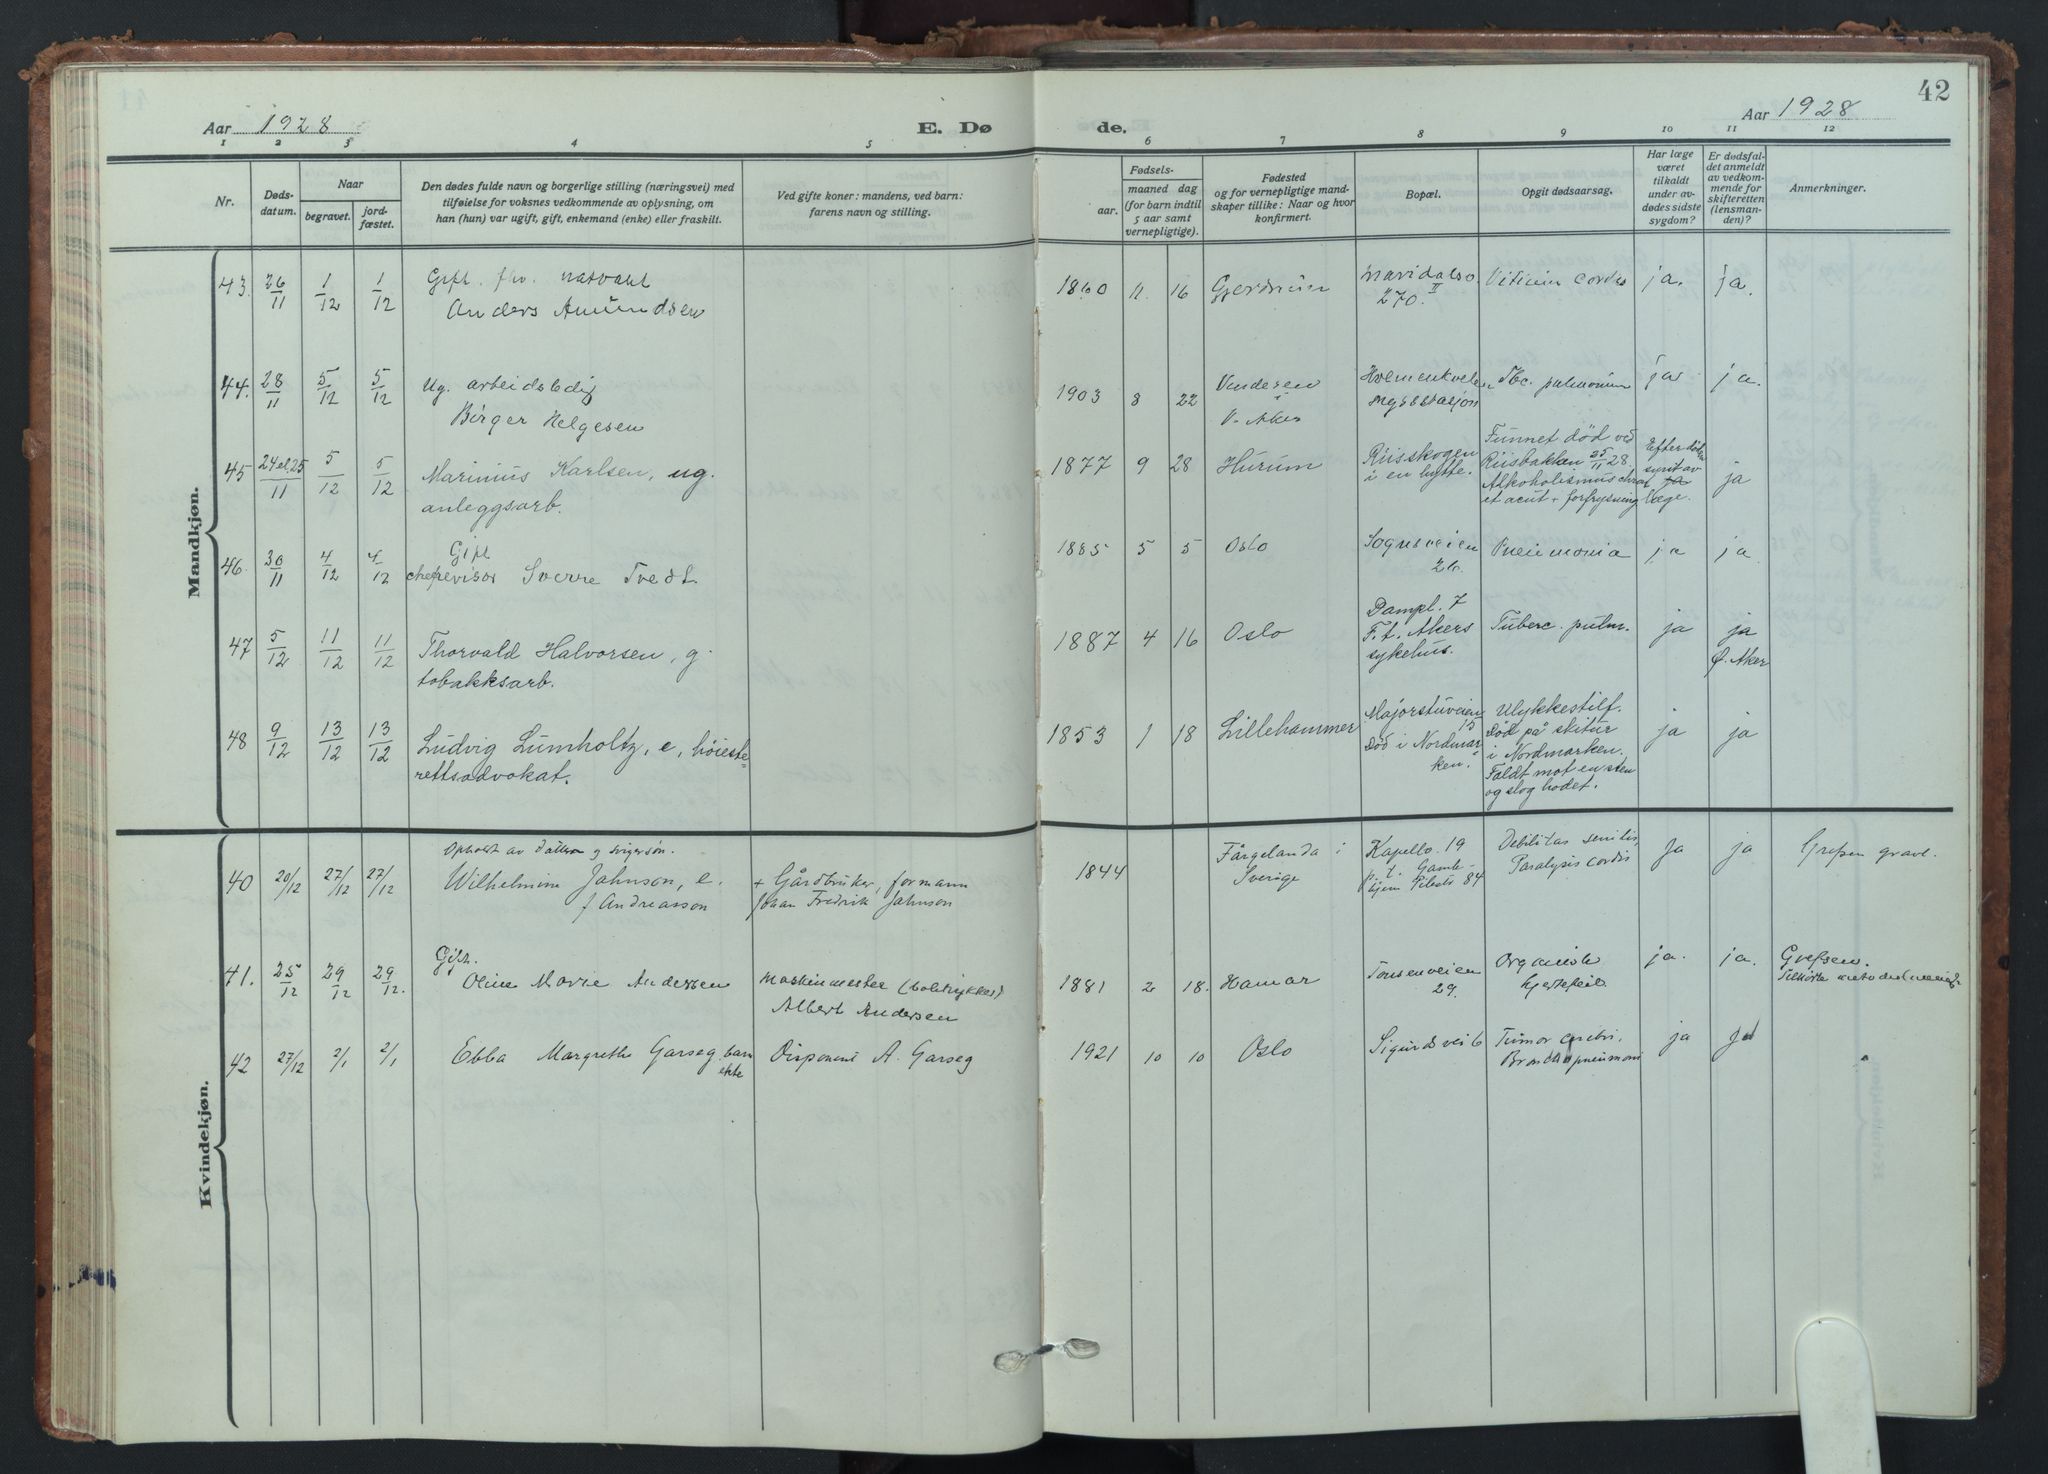 42
Aar 1928
E. Dø
de.
Aar 1928
1 2 3 4 5 6 7 8 9 10 11 12
Nr.
Døds-
datum.
Naar
begravet.
jord-
fæstet.
Den dødes fulde navn og borgerlige stilling (næringsvei) med
tilføielse for voksnes vedkommende av oplysning, om
han (hun) var ugift, gift, enkemand (enke) eller fraskilt.
Ved gifte koner: mandens, ved barn:
farens navn og stilling.
Fødsels-
aar.
maaned dag
(for barn indtil
5 aar samt
vernepligtige).
Fødested
og for vernepligtige mand-
skaper tillike: Naar og hvor
konfirmert.
Bopæl.
Opgit dødsaarsag.
Har læge
været
tilkaldt
under av-
dødes sidste
sygdom?
Er dødsfal-
det anmeldt
av vedkom-
mende for
skifteretten
(lensman-
den)?
Anmerkninger.
Mandkjøn.
43. 26/11 1/12 1/12
Gift. fhv.
Anders Amundsen
1860 11. 16 Gjerdrum
Maridalsv.
270. II
Vitium cordis
ja. ja.
44. 28/11 5/12 5/12
Ug. arbeidsledig
Birger Helgesen
1903 8 22
Vinderen
V. Aker
Tbc. pulmonum
ja ja.
45 24 el. 25/11 5/12 5/12
Marinius Karlsen, ug.
anleggsarb.
1877 9 28 Hurum
Riisskogen
i en hytte.
Funnet død ved
Riisbakken 25/11 28.
Alkoholismus chron.
et acut + forfrysning
Efter døden
synt av
læge.
ja
46. 30/11 4/12 4/12
Gift
chefrevisor Sverre Tvedt
1885 5 5 Oslo
Sognsveien
26.
Pneumonia
ja ja.
47 5/12 11/12 11/12
Thorvald Halvorsen, g.
tobakksarb.
1887 4 16 Oslo
Dampl. 7
F. t. Akers
sykehus.
Tuberc. pulm.
ja ja
Ø. Aker
48 9/12 13/12 13/12
Ludvig Lumholtz, e, høieste-
rettsadvokat.
1853 1 18 Lillehammer
Majorstuveien
15
Død i Nordmar-
ken.
Ulykkestilf.
Død på skitur
i Nordmarken.
Faldt mot en sten
og slog hodet.
ja ja
Kvindekjøn.
40 20/12 27/12 27/12
Opholdt av datter og svigersøn.
Wilhelmine Johnson, e.
f Andreasson
+ Gårdbruker, formann
Johan Fredrik Johnson
1844
Färgelanda i
Sverige
Kapellv. 19
p. t. Gamle-
hjem Pilestr 84
Debilitas senilis,
Paralysis cordis
Ja ja
Grefsen gravl.
41. 25/12 29/12 29/12.
Gift.
Oline Marie Andersen
Maskinmester
Albert Andersen
1881 2 18. Hamar
Tonsenveien
29.
Organisk
hjertefeil
ja. ja.
Grefsen.
Tilhørte metodistmenigh.
42 27/12 2/1 2/1
Ebba Margrethe Garseg, barn
ekte
Disponent A. Garseg
1921 10 10 Oslo
Sigurdsvei 6
Tumor cerebri,
Bronchopneumoni
ja ja